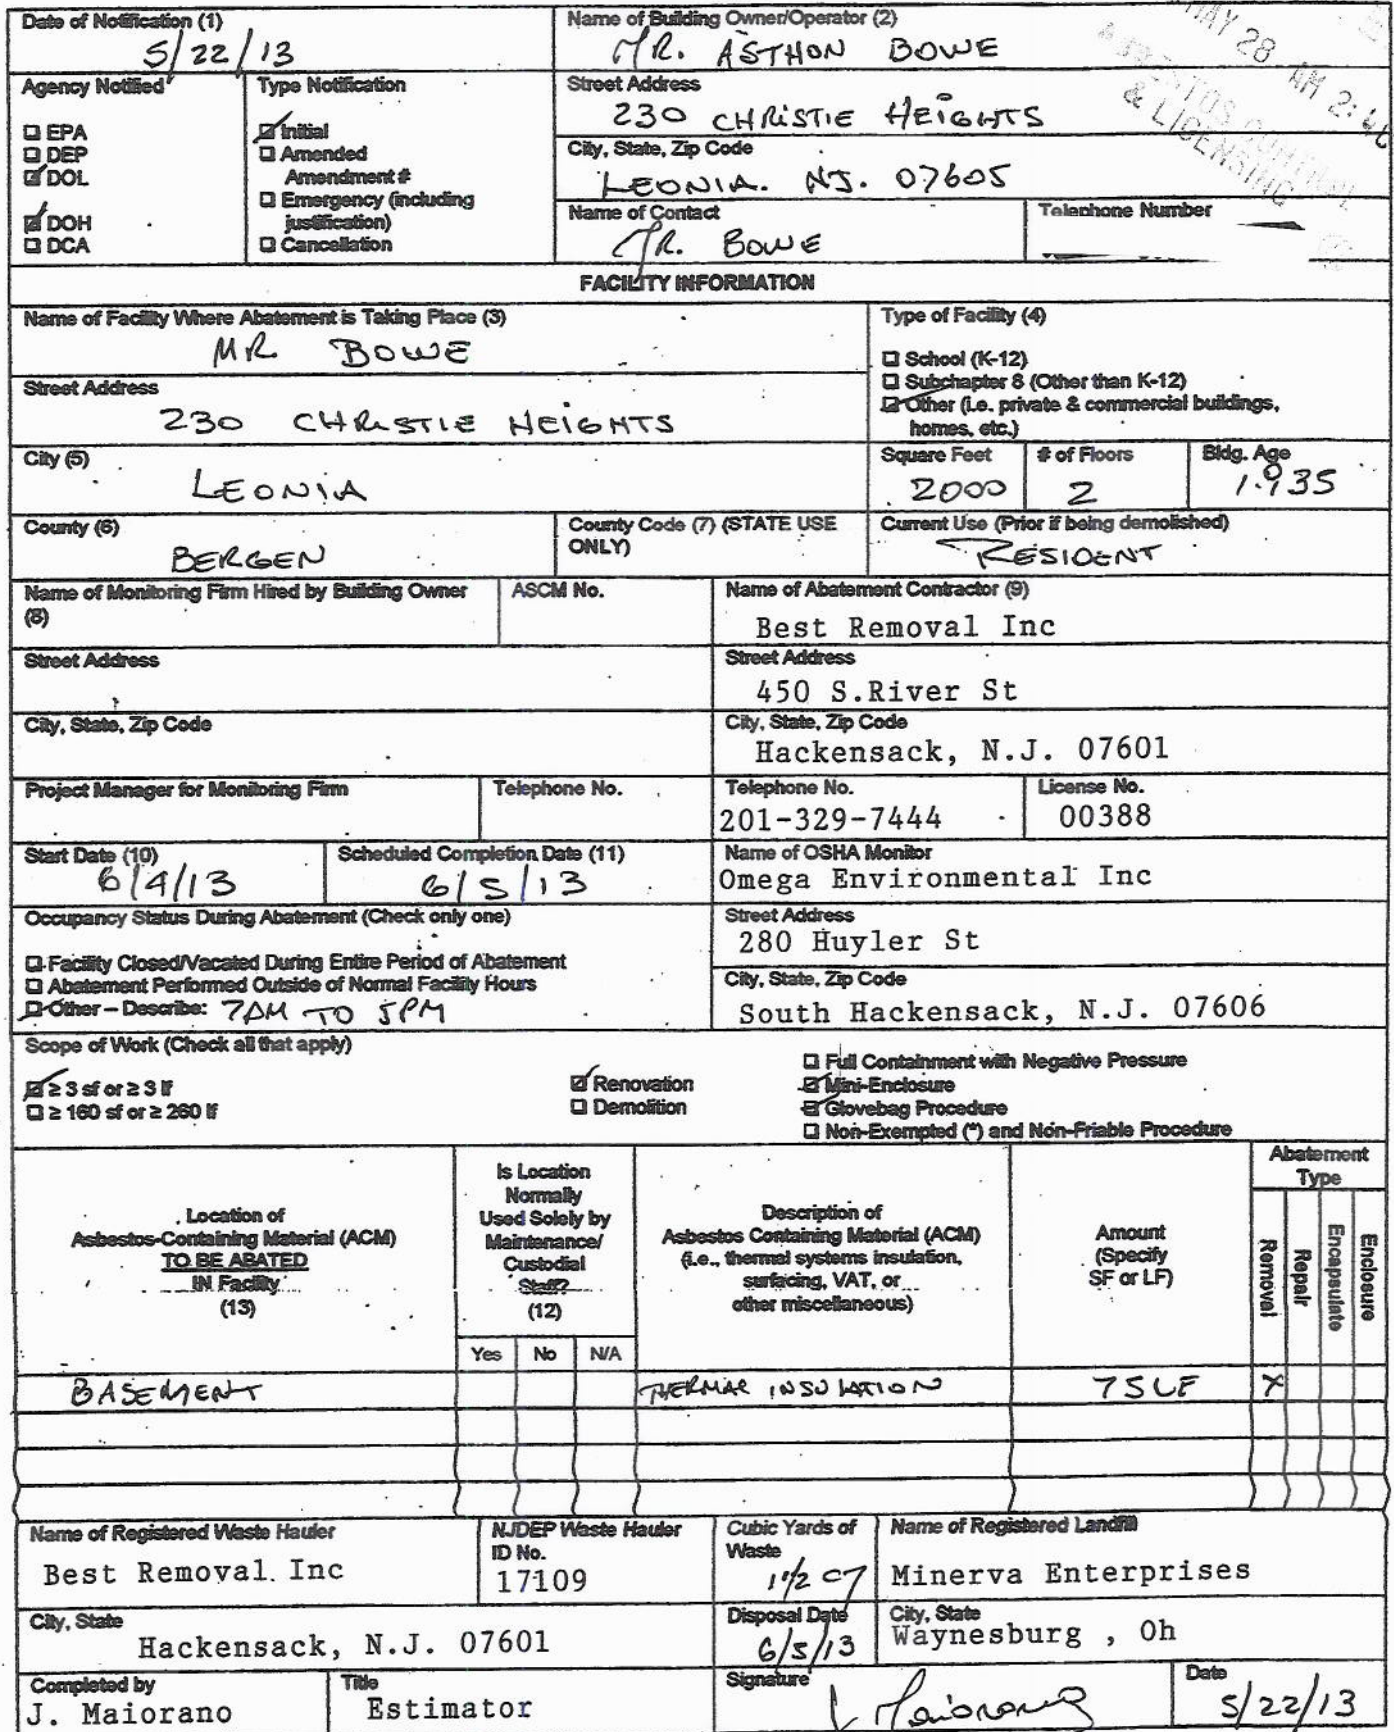 Date of Notification (1)
5/22/13
Name of Building Owner/Operator (2)
MR. ASTHON BOWE
MAY 28 AM 2:46
ASBESTOS CONTROL
& LICENSING
Agency Notified
☐ EPA
☐ DEP
☑ DOL
☑ DOH
☐ DCA
Type Notification
☑ Initial
☐ Amended
Amendment #
☐ Emergency (including
justification)
☐ Cancellation
Street Address
230 CHRISTIE HEIGHTS
City, State, Zip Code
LEONIA. NJ. 07605
Name of Contact
MR. BOWE
Telephone Number
FACILITY INFORMATION
Name of Facility Where Abatement is Taking Place (3)
MR. BOWE
Type of Facility (4)
☐ School (K-12)
☐ Subchapter 8 (Other than K-12)
☑ Other (i.e. private & commercial buildings,
homes, etc.)
Street Address
230 CHRISTIE HEIGHTS
City (5)
LEONIA
Square Feet
2000
# of Floors
2
Bldg. Age
1935
County (6)
BERGEN
County Code (7) (STATE USE
ONLY)
Current Use (Prior if being demolished)
RESIDENT
Name of Monitoring Firm Hired by Building Owner
(8)
ASCM No.
Name of Abatement Contractor (9)
Best Removal Inc
Street Address
Street Address
450 S.River St
City, State, Zip Code
City, State, Zip Code
Hackensack, N.J. 07601
Project Manager for Monitoring Firm
Telephone No.
Telephone No.
201-329-7444
License No.
00388
Start Date (10)
6/4/13
Scheduled Completion Date (11)
6/5/13
Name of OSHA Monitor
Omega Environmental Inc
Occupancy Status During Abatement (Check only one)
☐ Facility Closed/Vacated During Entire Period of Abatement
☐ Abatement Performed Outside of Normal Facility Hours
☑ Other – Describe: 7AM TO 5PM
Street Address
280 Huyler St
City, State, Zip Code
South Hackensack, N.J. 07606
Scope of Work (Check all that apply)
☑ ≥ 3 sf or ≥ 3 lf
☐ ≥ 160 sf or ≥ 260 lf
☑ Renovation
☐ Demolition
☐ Full Containment with Negative Pressure
☑ Mini-Enclosure
☑ Glovebag Procedure
☐ Non-Exempted (*) and Non-Friable Procedure
Location of
Asbestos-Containing Material (ACM)
TO BE ABATED
IN Facility
(13)
Is Location
Normally
Used Solely by
Maintenance/
Custodial
Staff?
(12)
Yes No N/A
Description of
Asbestos Containing Material (ACM)
(i.e., thermal systems insulation,
surfacing, VAT, or
other miscellaneous)
Amount
(Specify
SF or LF)
Abatement
Type
Removal
Repair
Encapsulate
Enclosure
BASEMENT THERMAL INSULATION 75 LF X
Name of Registered Waste Hauler
Best Removal Inc
NJDEP Waste Hauler
ID No.
17109
Cubic Yards of
Waste
1 1/2 CY
Name of Registered Landfill
Minerva Enterprises
City, State
Hackensack, N.J. 07601
Disposal Date
6/5/13
City, State
Waynesburg , Oh
Completed by
J. Maiorano
Title
Estimator
Signature
J Maiorano
Date
5/22/13